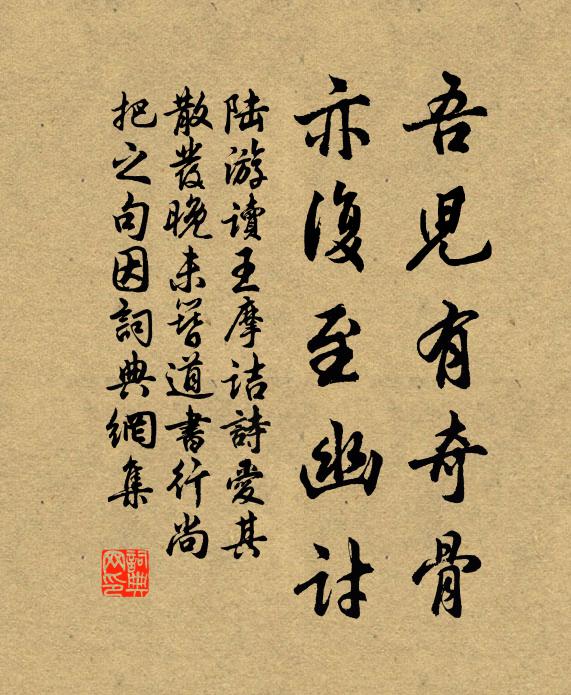 吾児有奇骨
亦復至幽討
陆游讀王摩诘詩愛其
散發晚未簪道書行尚
把之句因詞典網集
詞典网印